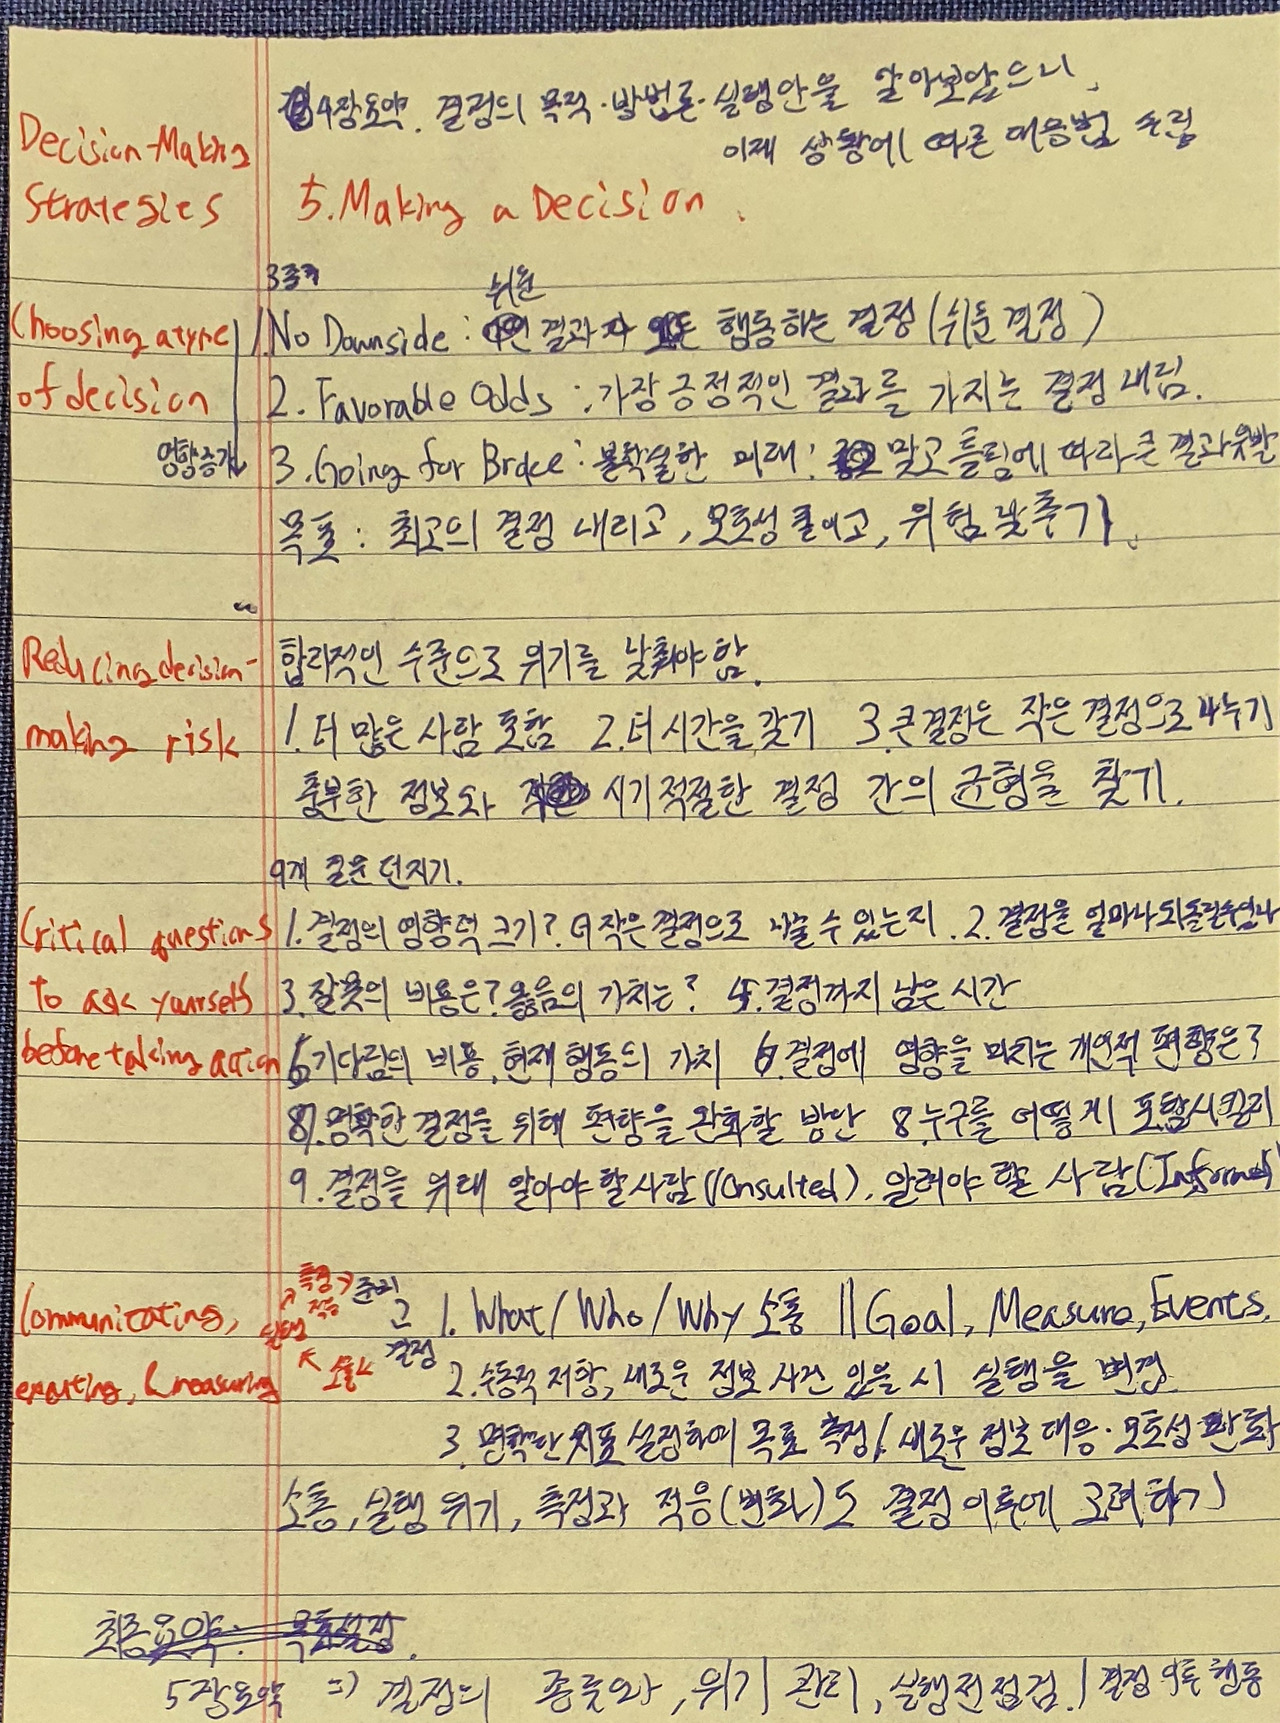 4장요약. 결정의 목적·방법론·실행안을 알아보았으니,
이제 상황에 따른 대응법 수립
Decision-Making
Strategies
5. Making a Decision.
3종류
쉬운
Choosing a type
of decision
영향증가
1. No Downside : 결과 행동하는 결정 (쉬운 결정)
2. Favorable Odds : 가장 긍정적인 결과를 가지는 결정 내림.
3. Going for Broke : 불확실한 미래 : 맞고 틀림에 따라 큰 결과 유발
목표 : 최고의 결정 내리고, 모호성 줄이고, 위험 낮추기.
Reducing decision-
making risk
합리적인 수준으로 위기를 낮춰야 함.
1. 더 많은 사람 포함 2. 더 시간을 갖기 3. 큰 결정은 작은 결정으로 나누기
충분한 정보와 시기적절한 결정 간의 균형을 찾기.
9개 질문 던지기.
Critical questions
to ask yourself
before taking action
1. 결정의 영향력 크기? 더 작은 결정으로 나눌 수 있는지. 2. 결정을 얼마나 되돌릴 수 있나
3. 잘못의 비용은? 옳음의 가치는? 4. 결정까지 남은 시간
5. 기다림의 비용, 현재 행동의 가치 6. 결정에 영향을 미치는 개인적 편향은?
7. 명확한 결정을 위해 편향을 완화할 방안 8. 누구를 어떻게 포함시킬지
9. 결정을 위해 알아야 할 사람 (Consulted), 알려야 할 사람 (Informed)
Communicating,
executing, & measuring
측정 → 준비
적응
실행
소통
결정
1. What/Who/Why 소통 || Goal, Measure, Events.
2. 수동적 저항, 새로운 정보 사건 있을 시 실행을 변경
3. 명확한 지표 설정하여 목표 측정 / 새로운 정보 대응·모호성 완화
소통, 실행 위기, 측정과 적응(변화)도 결정 이후에 고려하기
최종요약: 목표설정.
5장요약 => 결정의 종류와, 위기 관리, 실행전점검 / 결정 이후 행동